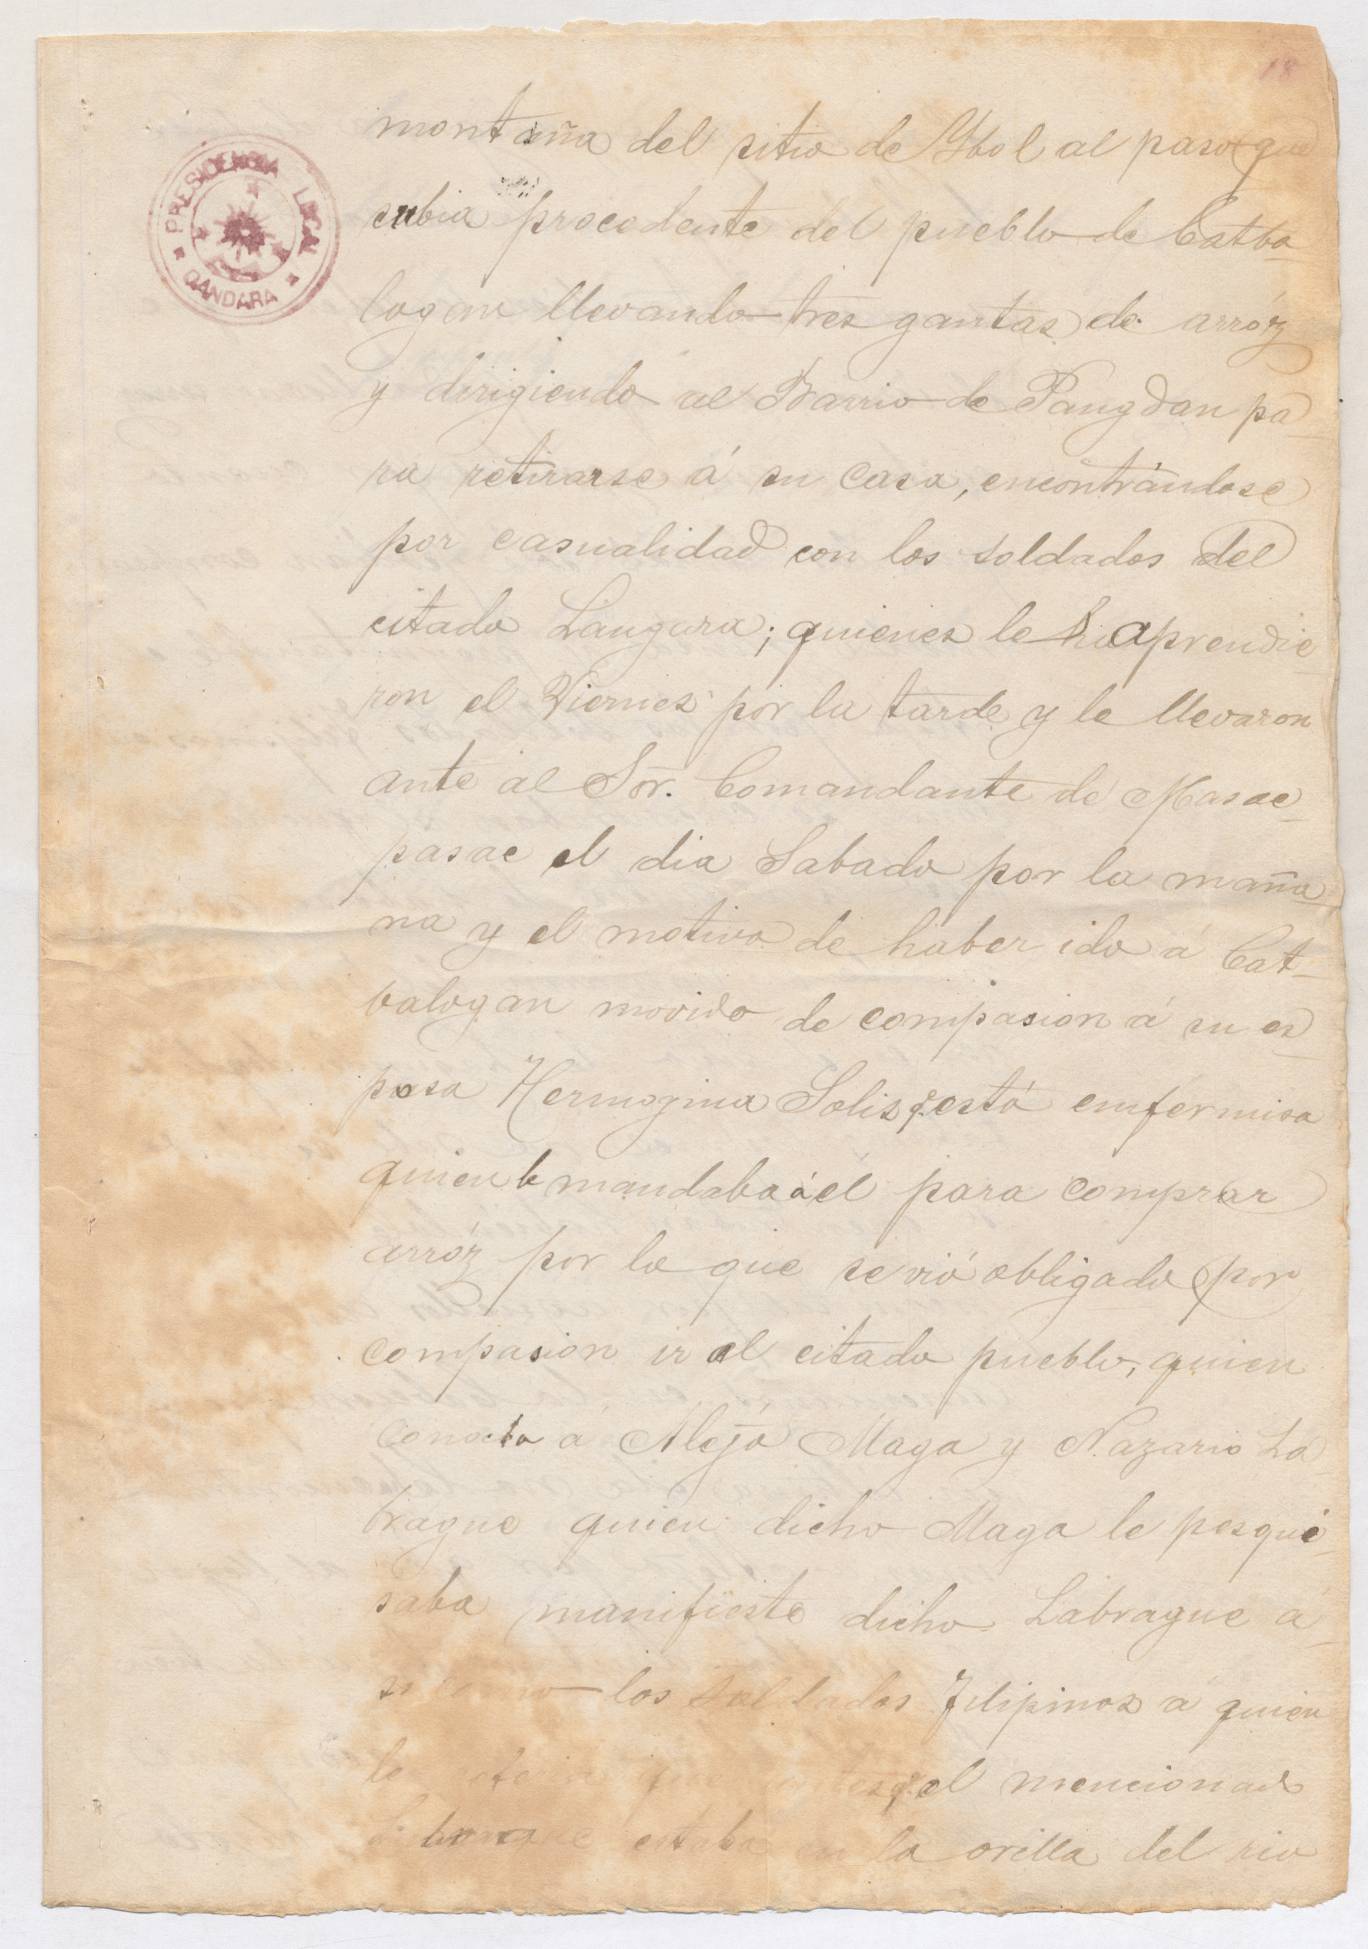 18
PRESIDENCIA LOCAL
GANDARA
montaña del sitio de Ybol al paso que
subia procedente del pueblo de Catba-
logan llevando tres gantas de arróz
y dirigiendo al Barrio de Pangdan pa-
ra retirarse á su casa, encontrándose
por casualidad con los soldados del
citado Langara; quienes le aprendie
ron el Viernes por la tarde y le llevaron
ante al Sor. Comandante de Masac-
pasac el dia Sabado por la maña-
na y el motivo de haber ido á Cat-
balogan movido de compasion á su es-
posa Hermogina Solis q. está enfermisa
quien le mandaba á el para comprar
arróz por lo que se vió obligado por
compasion ir al citado pueblo, quien
á Alejo Maga y Nazario La-
brague quien dicho Maga le pesqui-
saba manifieste dicho Labrague á-
si como los soldados Filipinos á quien
el mencionado
estaba en la orilla del rio